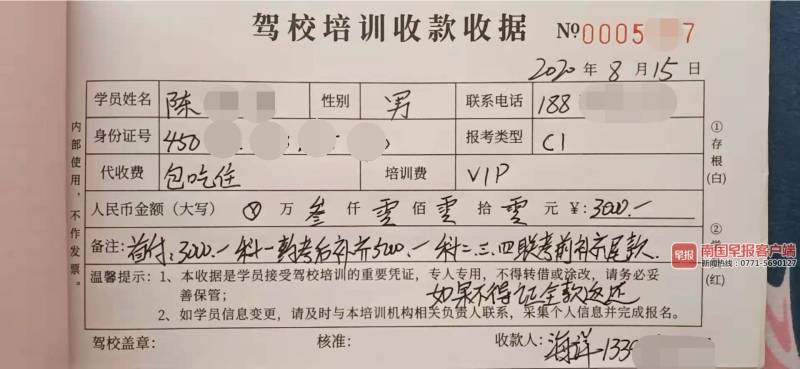 驾校培训收款收据 № 0005 7
2020 年 8 月 15 日
学员姓名 陈 性别 男 联系电话 188
身份证号 450 报考类型 C1
代收费 包吃住 培训费 VIP
人民币金额（大写） ⊗ 万 叁 仟 零 佰 零 拾 零 元 ¥：3000.-
备注：首付：3000.- 科一考后补齐5000.- 科二.三.四联考前补齐尾款.
温馨提示：1、本收据是学员接受驾校培训的重要凭证，专人专用，不得转借或涂改，请务必妥
善保管；
如果不得证全款返还
2、如学员信息变更，请及时与本培训机构相关负责人联系，采集个人信息并完成报名。
驾校盖章： 核准： 收款人：海洋-133
内部使用，不作发票。
①存根(白)
②学
(红)
早报 南国早报客户端
新闻热线：0771-5690127